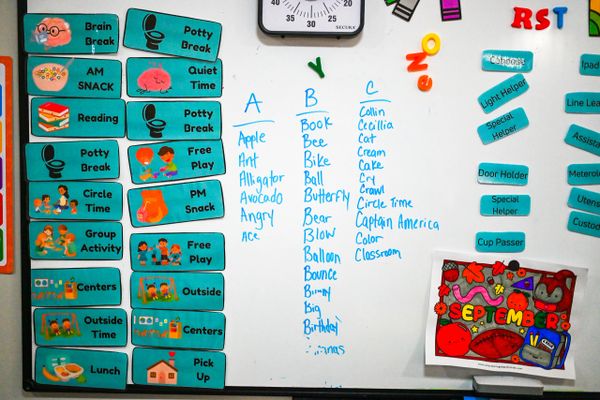 Brain Break
AM SNACK
Reading
Potty Break
Circle Time
Group Activity
Centers
Outside Time
Lunch
Potty Break
Quiet Time
Potty Break
Free Play
PM Snack
Free Play
Outside
Centers
Pick Up
40 35 30 25 20
45
SECURE
Y
A
Apple
Ant
Alligator
Avocado
Angry
Ace
B
Book
Bee
Bike
Ball
Butterfly
Bear
Blow
Balloon
Bounce
Big
Birthday
C
Collin
Cecillia
Cat
Cream
Cake
Cry
Crawl
Circle Time
Captain America
Color
Classroom
RST
Caboose
Light Helper
Special Helper
Door Holder
Special Helper
Cup Passer
Ipad
Line
SEPTEMBER